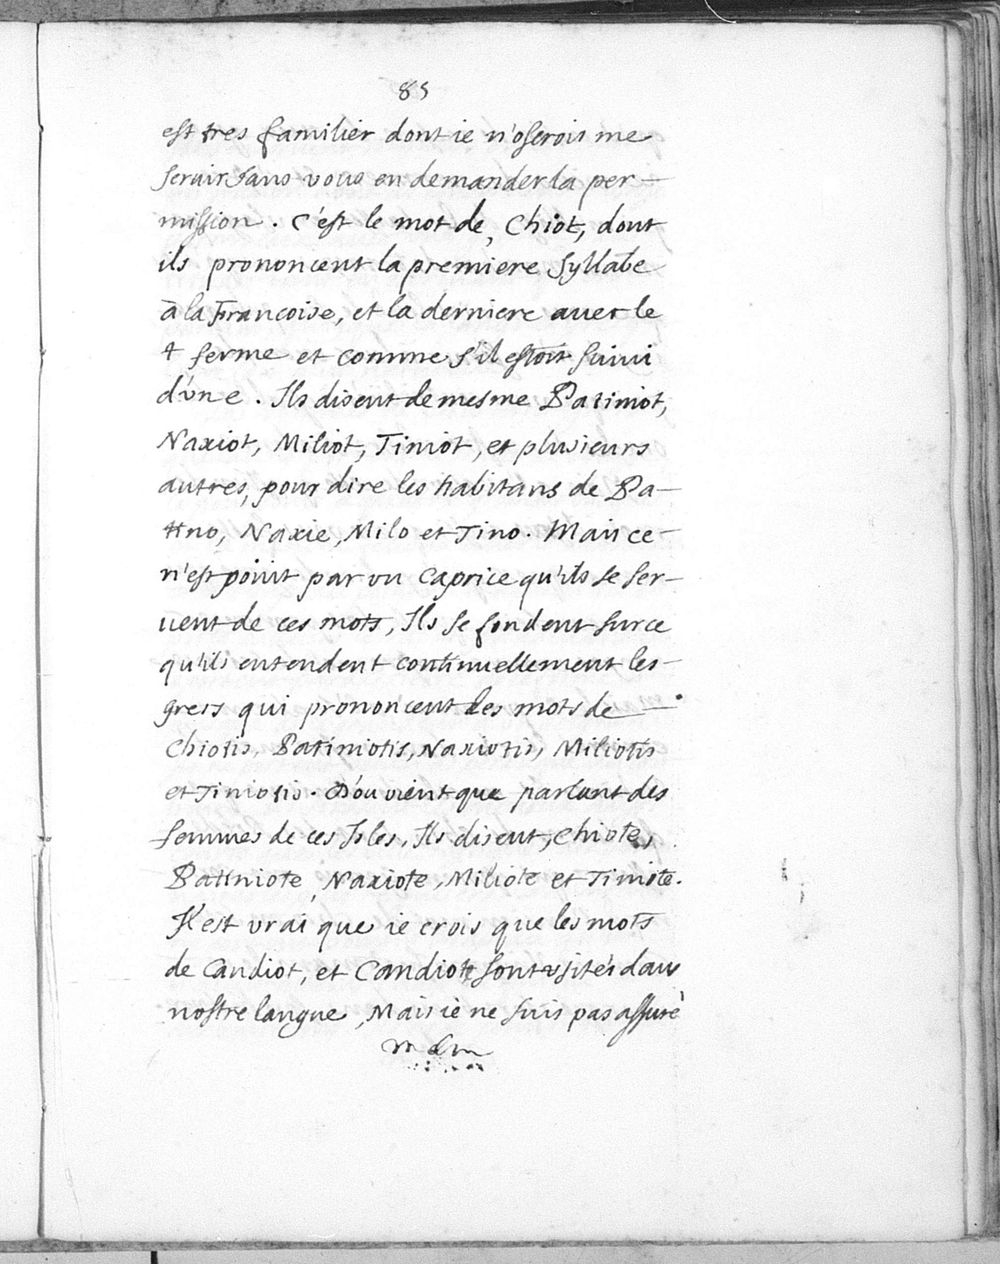 85
est tres familier dont ie n'oserois me
seruir sans vous en demander la per-
mission. C'est le mot de, Chiot, dont
ils prononcent la premiere Syllabe
à la Francoise, et la derniere auec le
t ferme et comme s'il estoit suiui
d'vn e. Ils disent de mesme Patiniot,
Naxiot, Miliot, Tiniot, et plusieurs
autres, pour dire les habitans de Pa-
tino, Naxie, Milo et Tino. Mais ce
n'est point par vn Caprice qu'ils se ser-
uent de ces mots, Ils se fondent sur ce
qu'ils entendent continuellement les
grecs qui prononcent les mots de
Chiotis, Patiniotis, Naxiotis, Miliotis
et Tiniotis. D'ou vient que parlant des
femmes de ces Isles, Ils disent, Chiote,
Patiniote, Naxiote, Miliote et Tiniote.
Il est vrai que ie crois que les mots
de Candiot, et Candiote sont vsités dans
nostre langue, Mais ie ne suis pas assuré